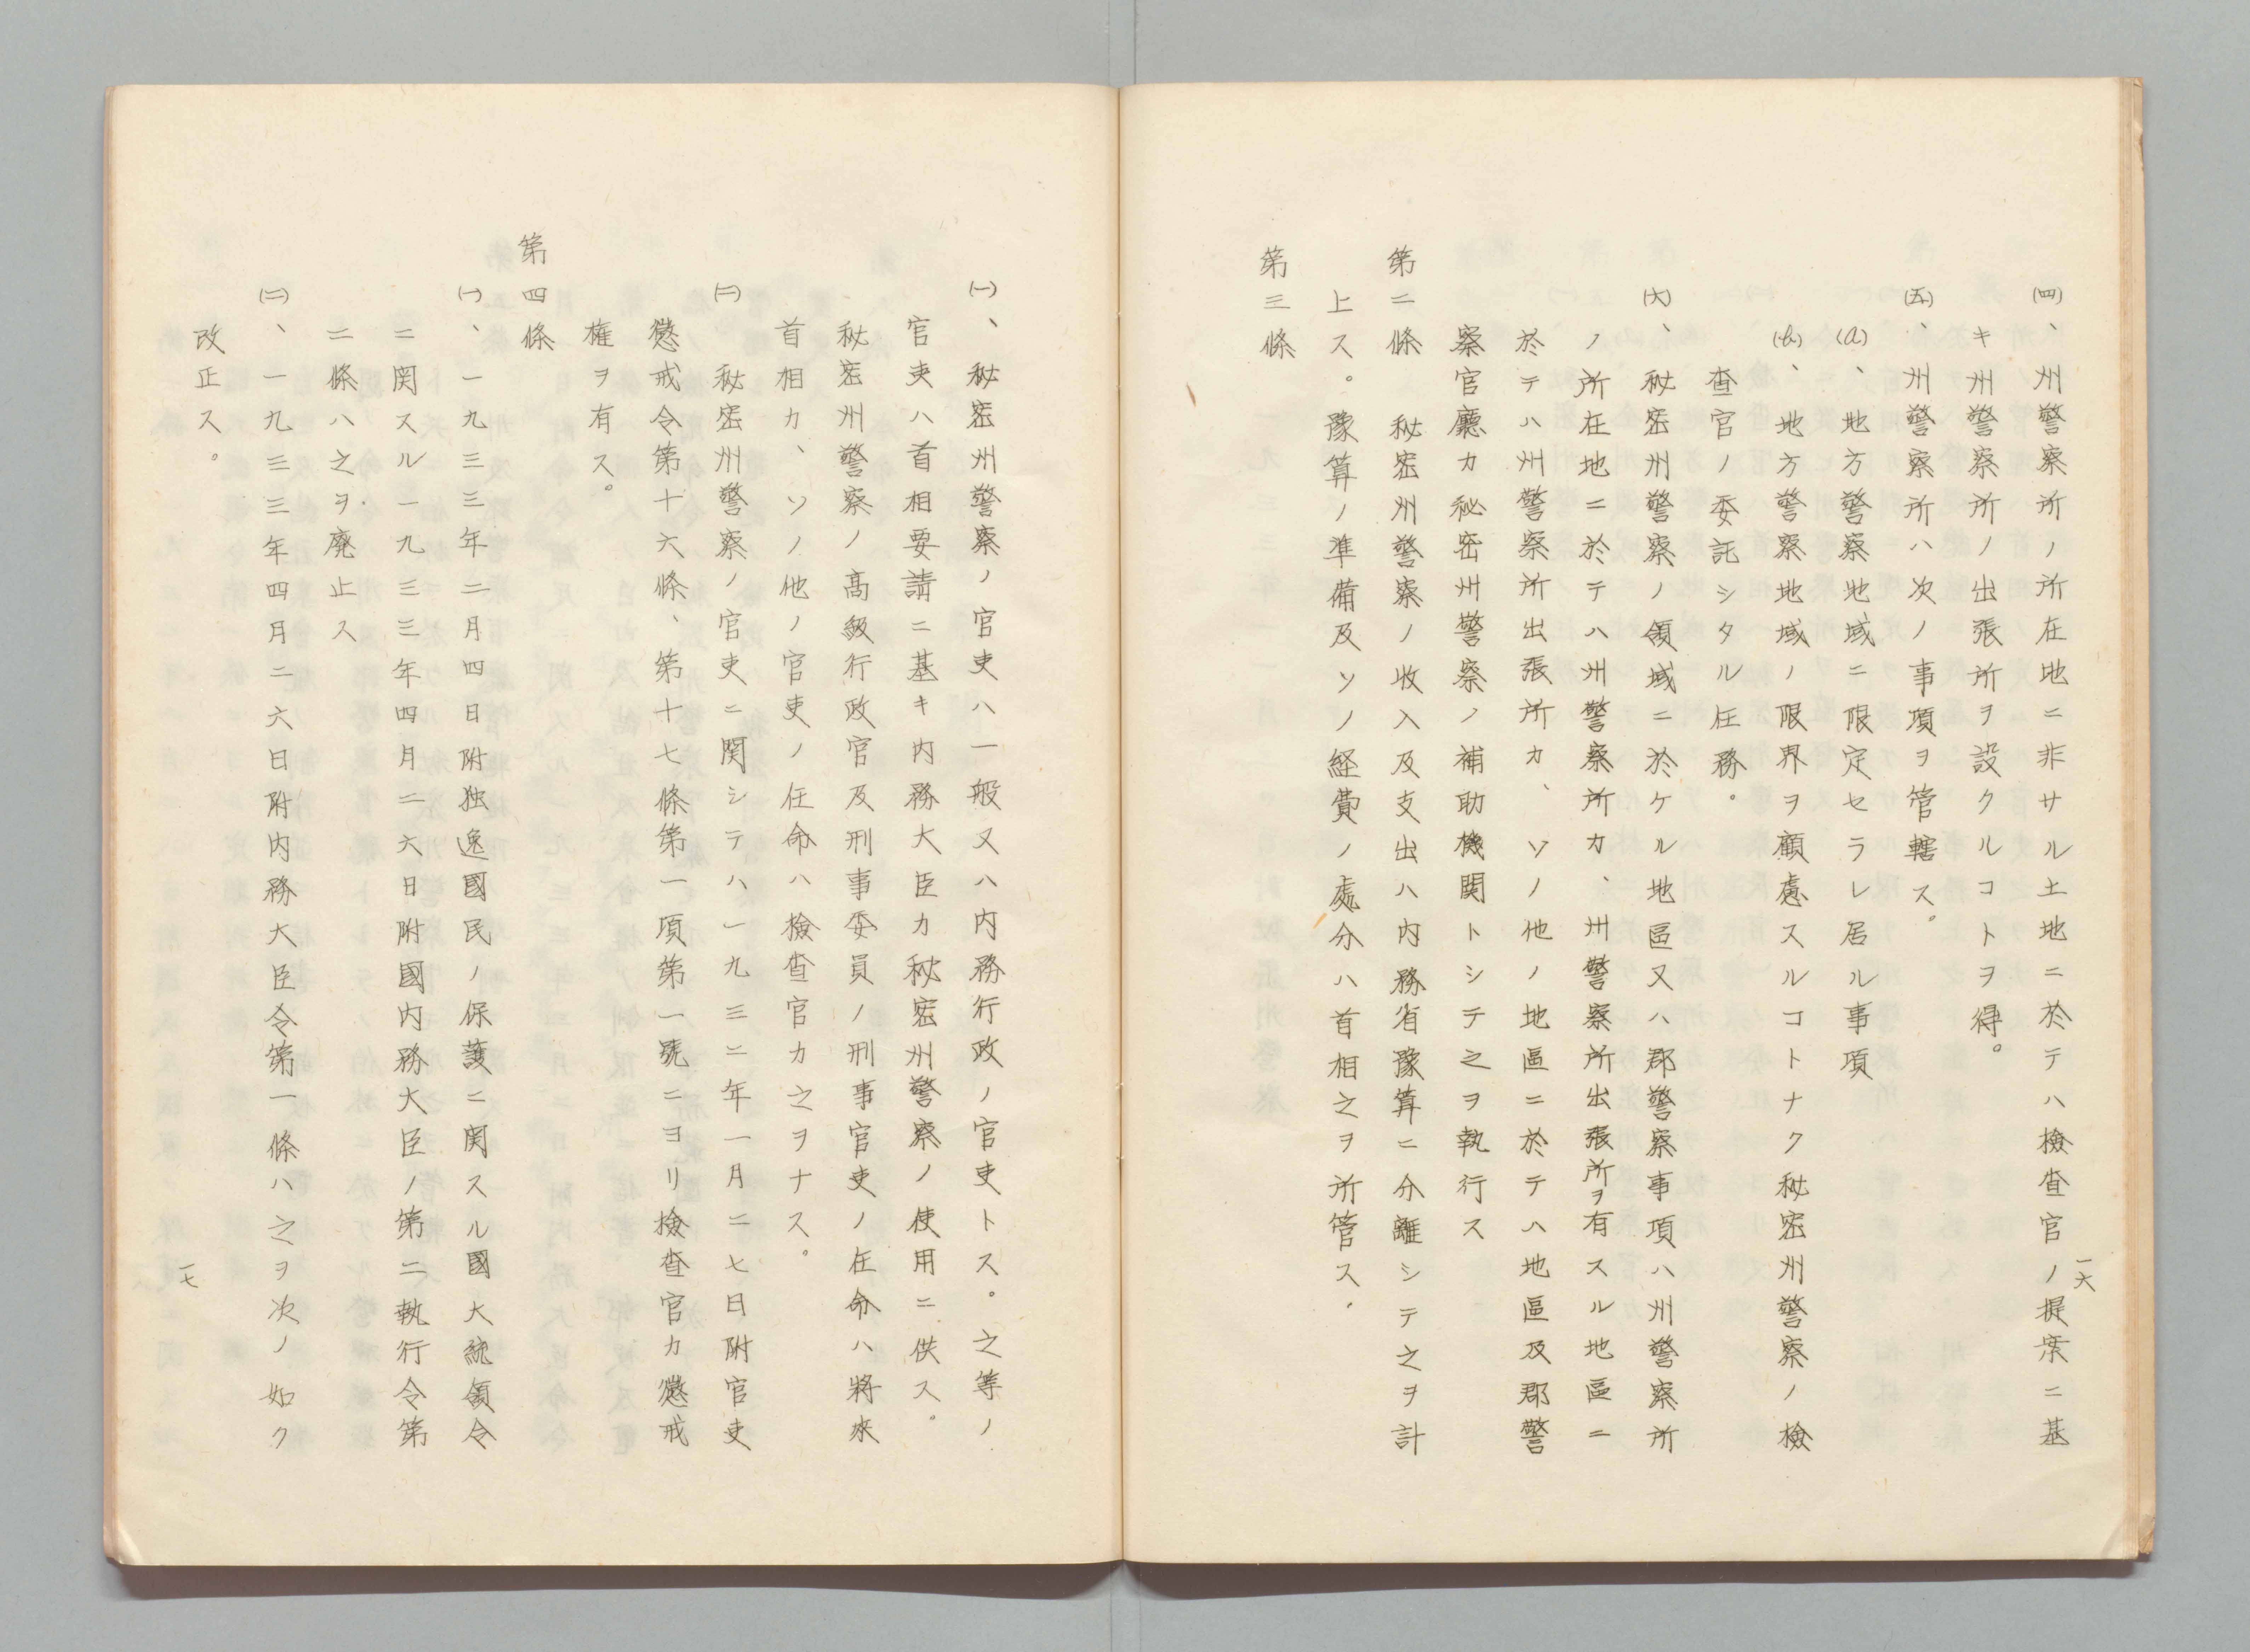 ㈣、州警察所ノ所在地ニ非サル土地ニ於テハ檢査官ノ提案ニ基
キ州警察所ノ出張所ヲ設クルコトヲ得。
㈤、州警察所ハ次ノ事項ヲ管轄ス。
(a)、地方警察地域ニ限定セラレ居ル事項
(b)、地方警察地域ノ限界ヲ顧慮スルコトナク秘密州警察ノ檢
査官ノ委託シタル任務。
㈥、秘密州警察ノ領域ニ於ケル地區又ハ郡警察事項ハ州警察所
ノ所在地ニ於テハ州警察所カ、州警察所出張所ヲ有スル地區ニ
於テハ州警察所出張所カ、ソノ他ノ地區ニ於テハ地區及郡警
察官廳カ秘密州警察ノ補助機関トシテ之ヲ執行ス
第二條　秘密州警察ノ收入及支出ハ內務省豫算ニ分離シテ之ヲ計
上ス。豫算ノ準備及ソノ経費ノ處分ハ首相之ヲ所管ス.
第三條
一六
㈠、秘密州警察ノ官吏ハ一般又ハ内務行政ノ官吏トス。之等ノ
官吏ハ首相要請ニ基キ内務大臣カ秘密州警察ノ使用ニ供ス。
秘密州警察ノ高級行政官及刑事委員ノ刑事官吏ノ任命ハ將來
首相カ、ソノ他ノ官吏ノ任命ハ檢査官カ之ヲナス。
㈡　秘密州警察ノ官吏ニ関シテハ一九三二年一月二七日附官吏
懲戒令第十六條、第十七條第一項第一號ニヨリ檢査官カ懲戒
権ヲ有ス。
第四條
㈠、一九三三年二月四日附独逸國民ノ保護ニ関スル國大統領令
ニ関スル一九三三年四月二六日附國内務大臣ノ第二執行令第
二條ハ之ヲ廃止ス
㈡、一九三三年四月二六日附内務大臣令第一條ハ之ヲ次ノ如ク
改正ス。
一七